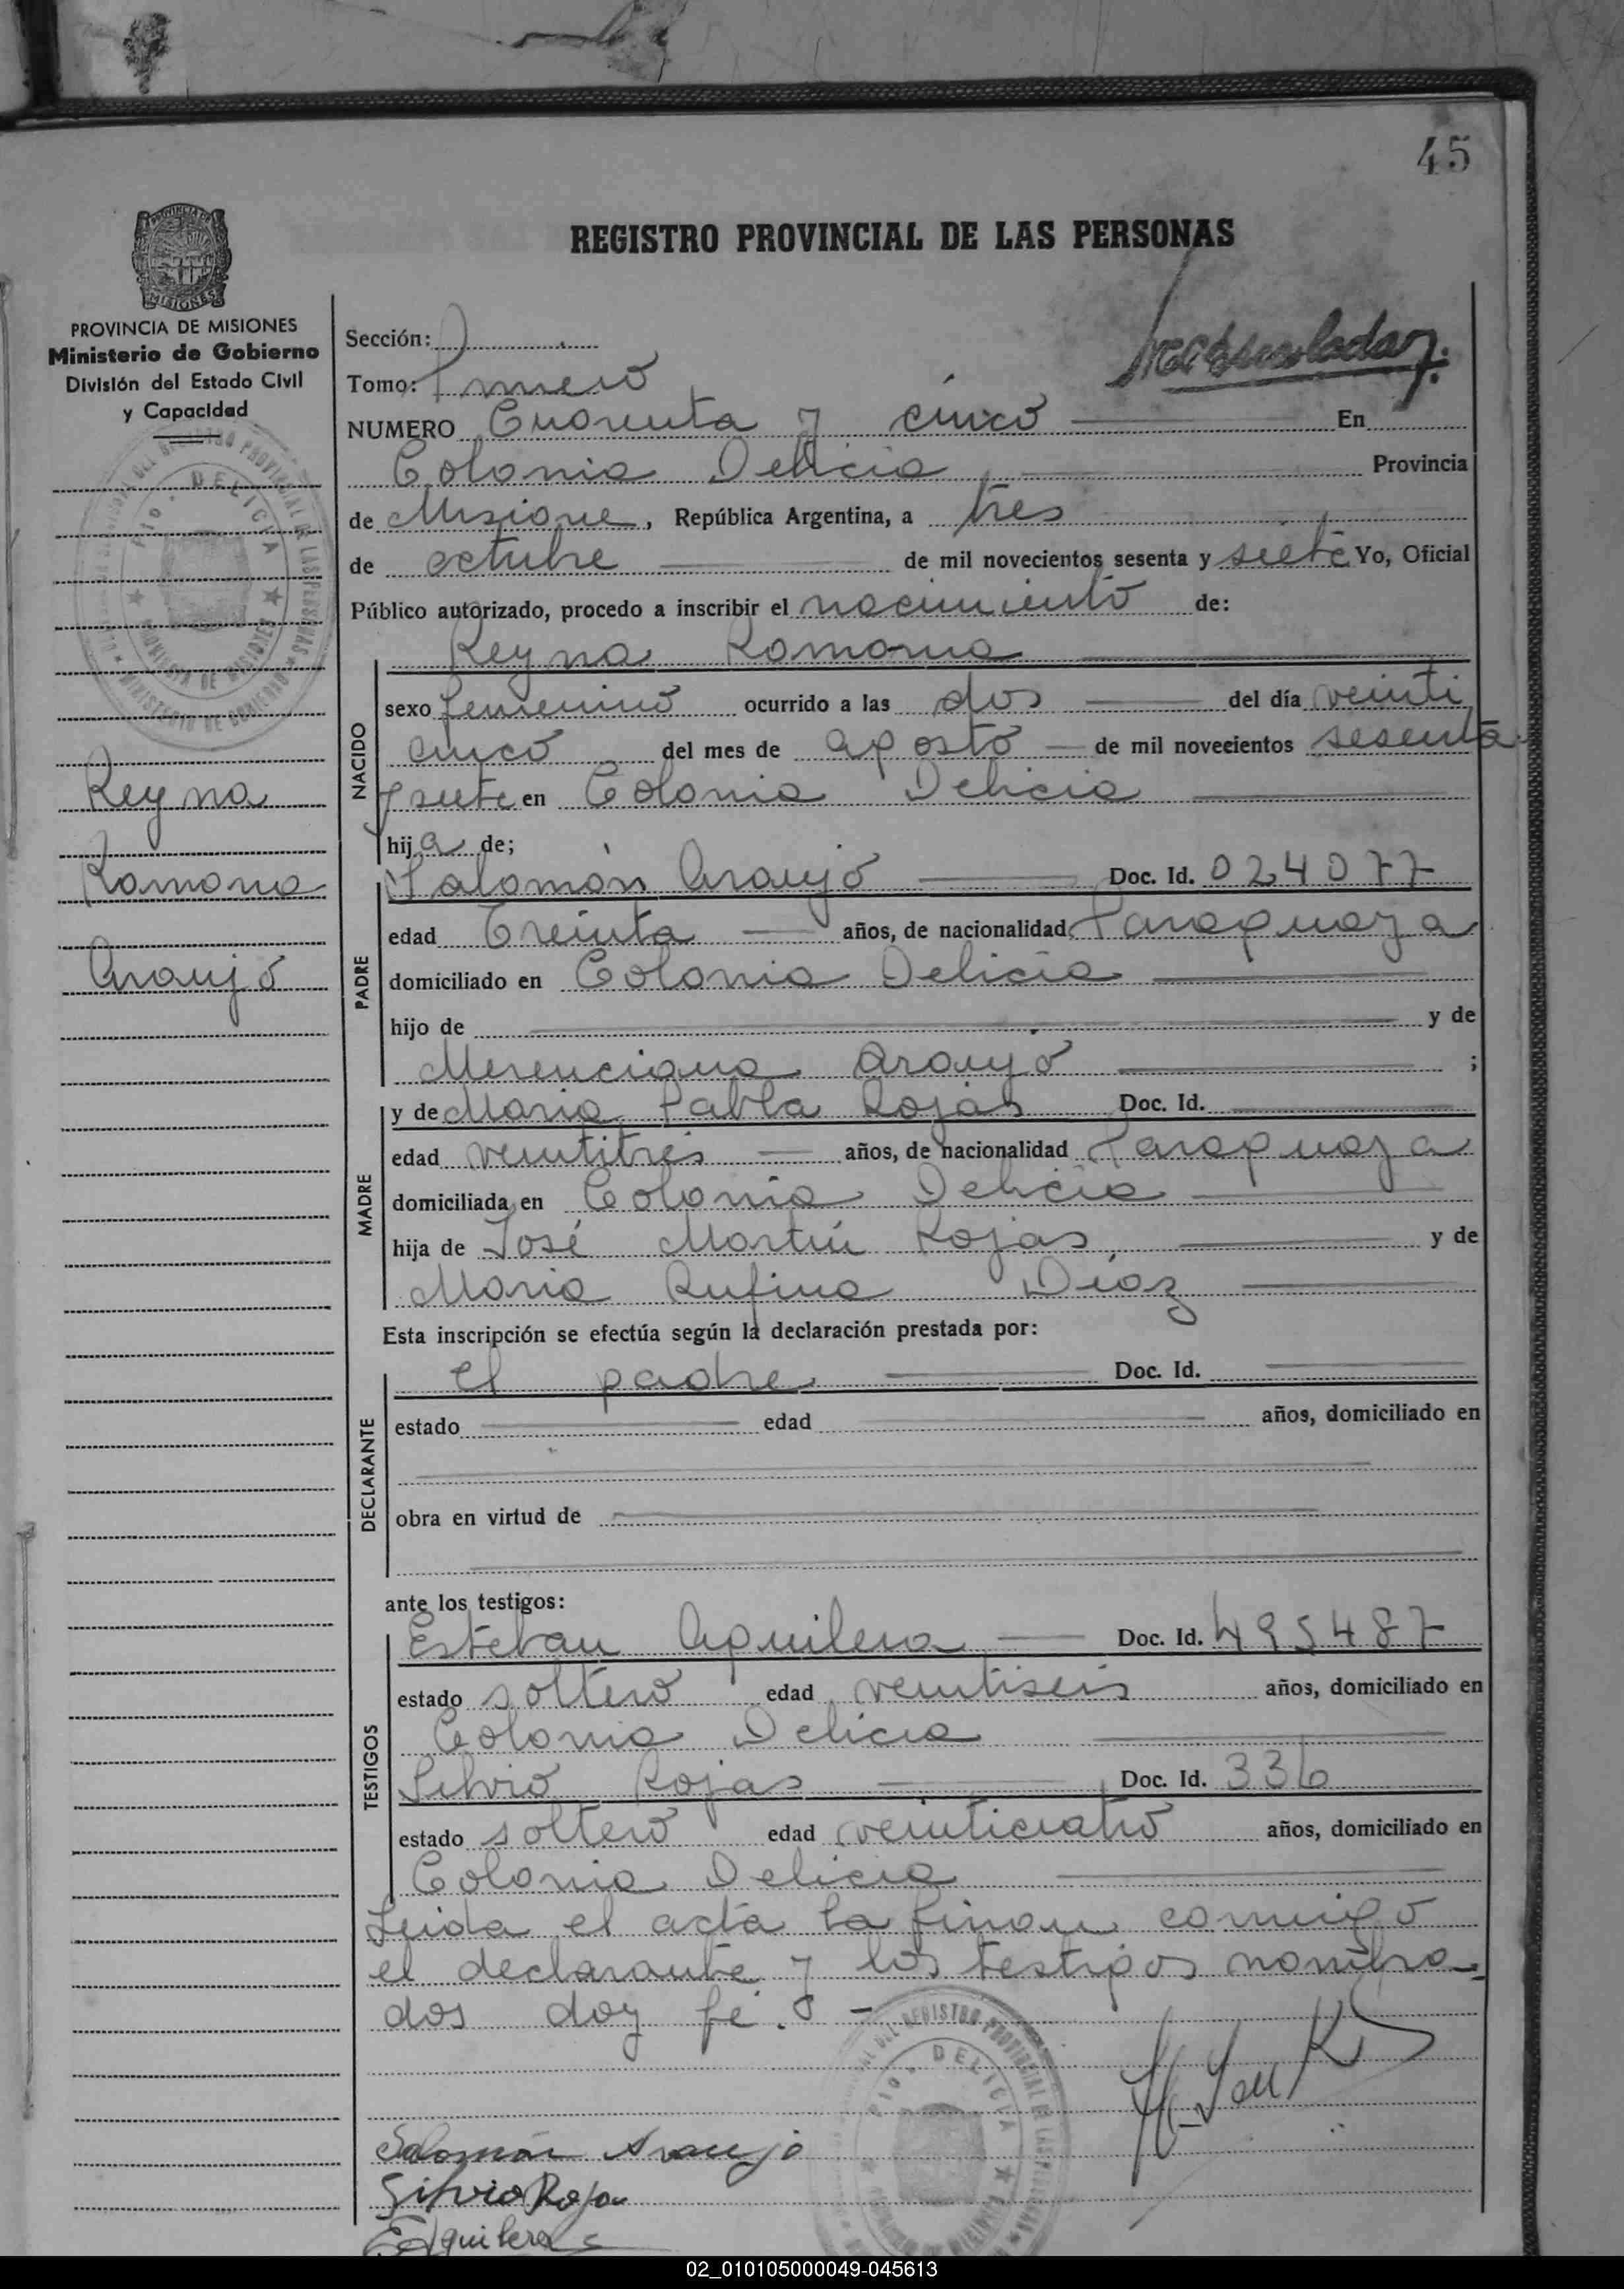 45
REGISTRO PROVINCIAL DE LAS PERSONAS
PROVINCIA DE MISIONES
Ministerio de Gobierno
División del Estado Civil
y Capacidad
Reyna
Ramona
Araujó
Sección:
Tomo: Primero
NUMERO Cuarenta y cinco En
Colonia Delicia Provincia
de Misiones, República Argentina, a tres
de octubre de mil novecientos sesenta y siete Yo, Oficial
Público autorizado, procedo a inscribir el nacimiento de:
Reyna Ramona
NACIDO
sexo femenino ocurrido a las dos del día veinti
cinco del mes de agosto de mil novecientos sesenta
y siete en Colonia Delicia
hija de;
PADRE
Salomón Araujó Doc. Id. 024077
edad Treinta años, de nacionalidad Paraguaya
domiciliado en Colonia Delicia
hijo de y de
Merenciana Araujó ;
MADRE
y de Maria Pabla Rojas Doc. Id.
edad veintitrés años, de nacionalidad Paraguaya
domiciliada en Colonia Delicia
hija de José Martín Rojas, y de
Maria Rufina Díaz
Esta inscripción se efectúa según la declaración prestada por:
DECLARANTE
el padre Doc. Id.
estado edad años, domiciliado en
obra en virtud de
ante los testigos:
TESTIGOS
Esteban Aguilera Doc. Id. 495487
estado soltero edad veintiseis años, domiciliado en
Colonia Delicia
Silvio Rojas Doc. Id. 336
estado soltero edad veinticuatro años, domiciliado en
Colonia Delicia
Leida el acta la firman conmigo
el declarante y los testigos nombra
dos doy fé.
DELICIA
Salomón Araujo
Silvio Rojas
E Aguilera
02_010105000049-045613